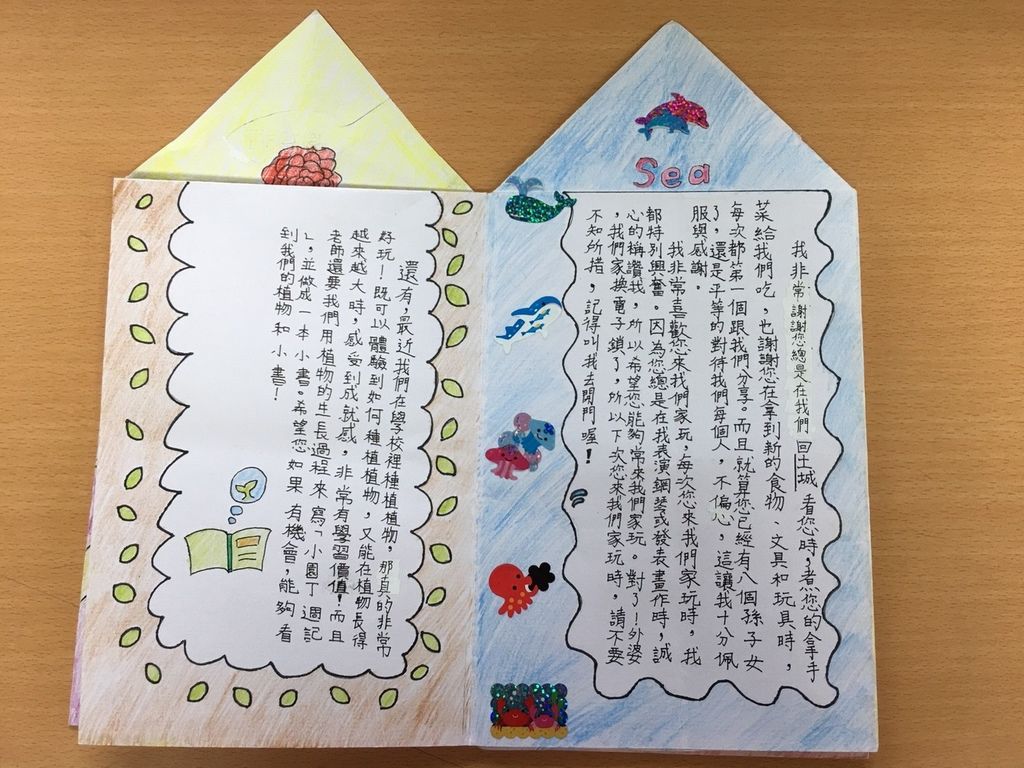 Sea
我非常謝謝您總是在我們回土城看您時，煮您的拿手
菜給我們吃，也謝謝您在拿到新的食物、文具和玩具時，
每次都第一個跟我們分享。而且就算您已經有八個孫子女
了，還是平等的對待我們每個人，不偏心，這讓我十分佩
服與感謝。
我非常喜歡您來我們家玩，每次您來我們家玩時，我
都特別興奮。因為您總是在我表演鋼琴或發表畫作時，誠
心的稱讚我，所以希望您能夠常來我們家玩。對了！外婆
，我們家換電子鎖了，所以下次您來我們家玩時，請不要
不知所措，記得叫我去開門喔！
還有，最近我們在學校裡種植植物，那真的非常
好玩！既可以體驗到如何種植植物，又能在植物長得
越來越大時，感受到成就感，非常有學習價值！而且
老師還要我們用植物的生長過程來寫「小園丁週記
」，並做成一本小書。希望您如果有機會，能夠看
到我們的植物和小書！